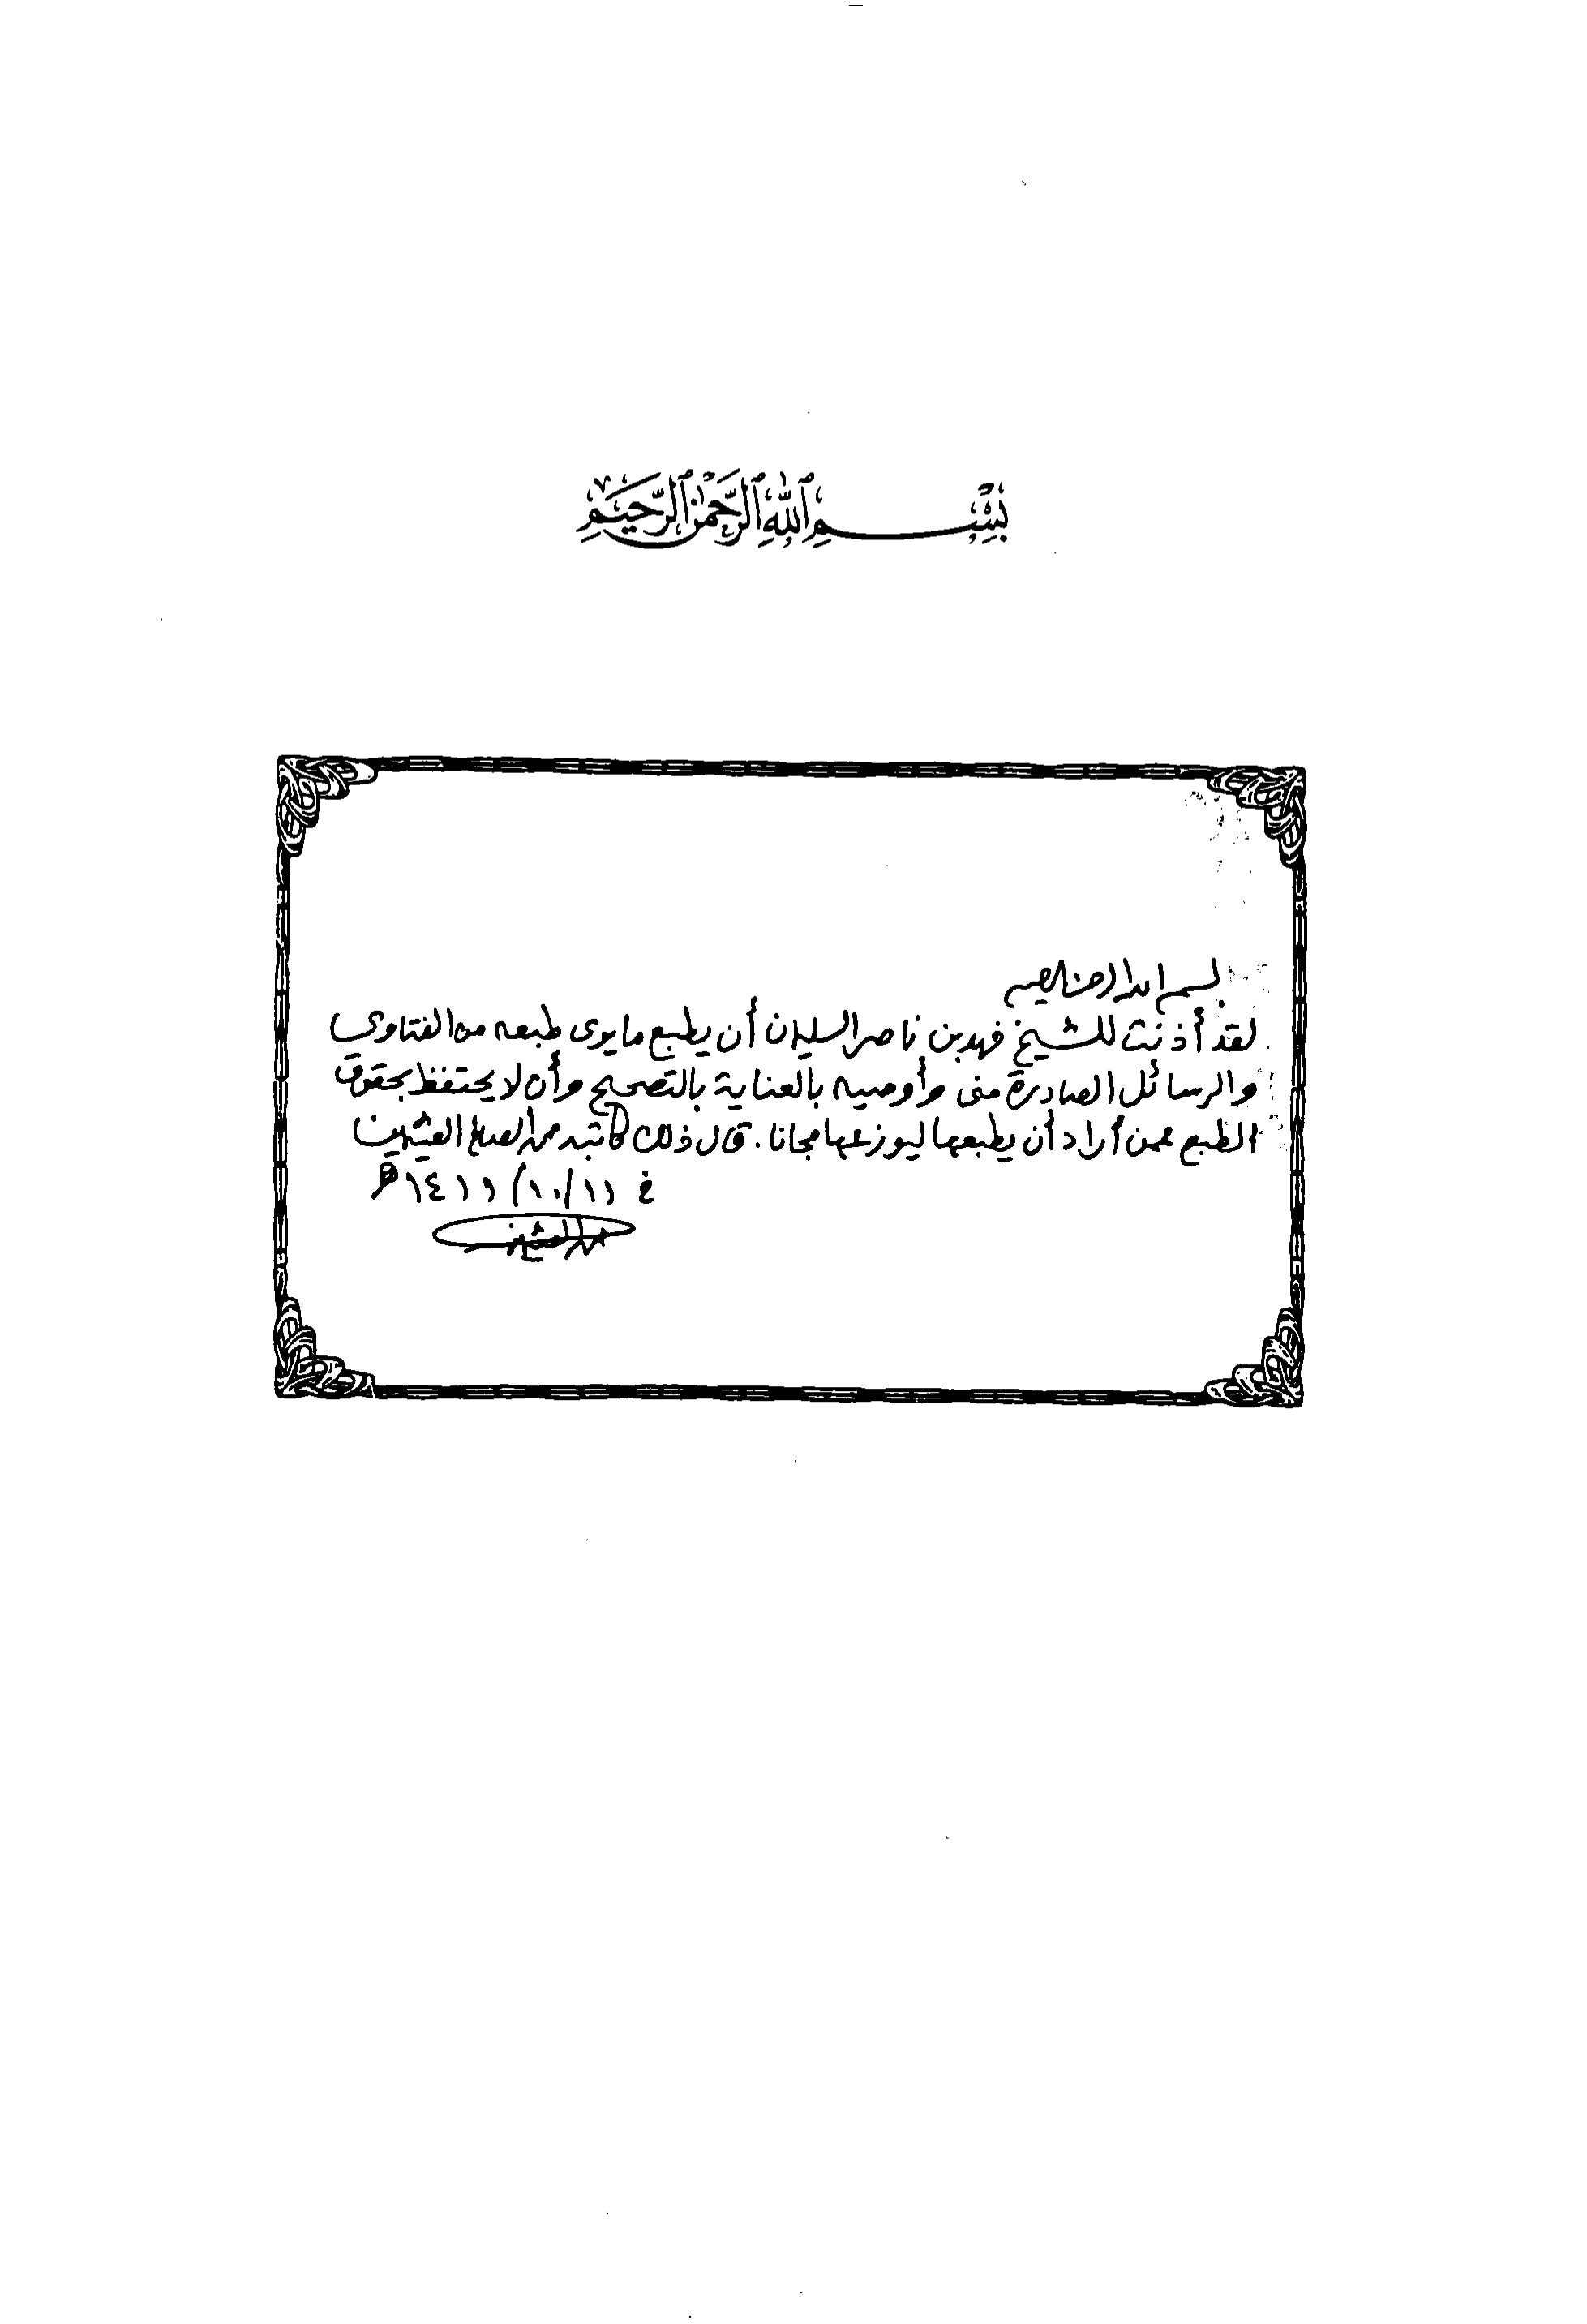 بِسْمِ ٱللَّهِ ٱلرَّحْمَٰنِ ٱلرَّحِيمِ
بسم الله الرحمن الرحيم
لقد أذنت للشيخ فهد بن ناصر السليمان أن يطبع ما يرى طبعه من الفتاوى
والرسائل الصادرة منى وأوصيه بالعناية بالتصحيح وأن لا يحتفظ بحقوق
الطبع عمن أراد أن يطبعها ليوزعها مجانا. قال ذلك كاتبه محمد الصالح العثيمين
في ١١/ ١٠/ ١٤١١هـ
محمد العثيمين